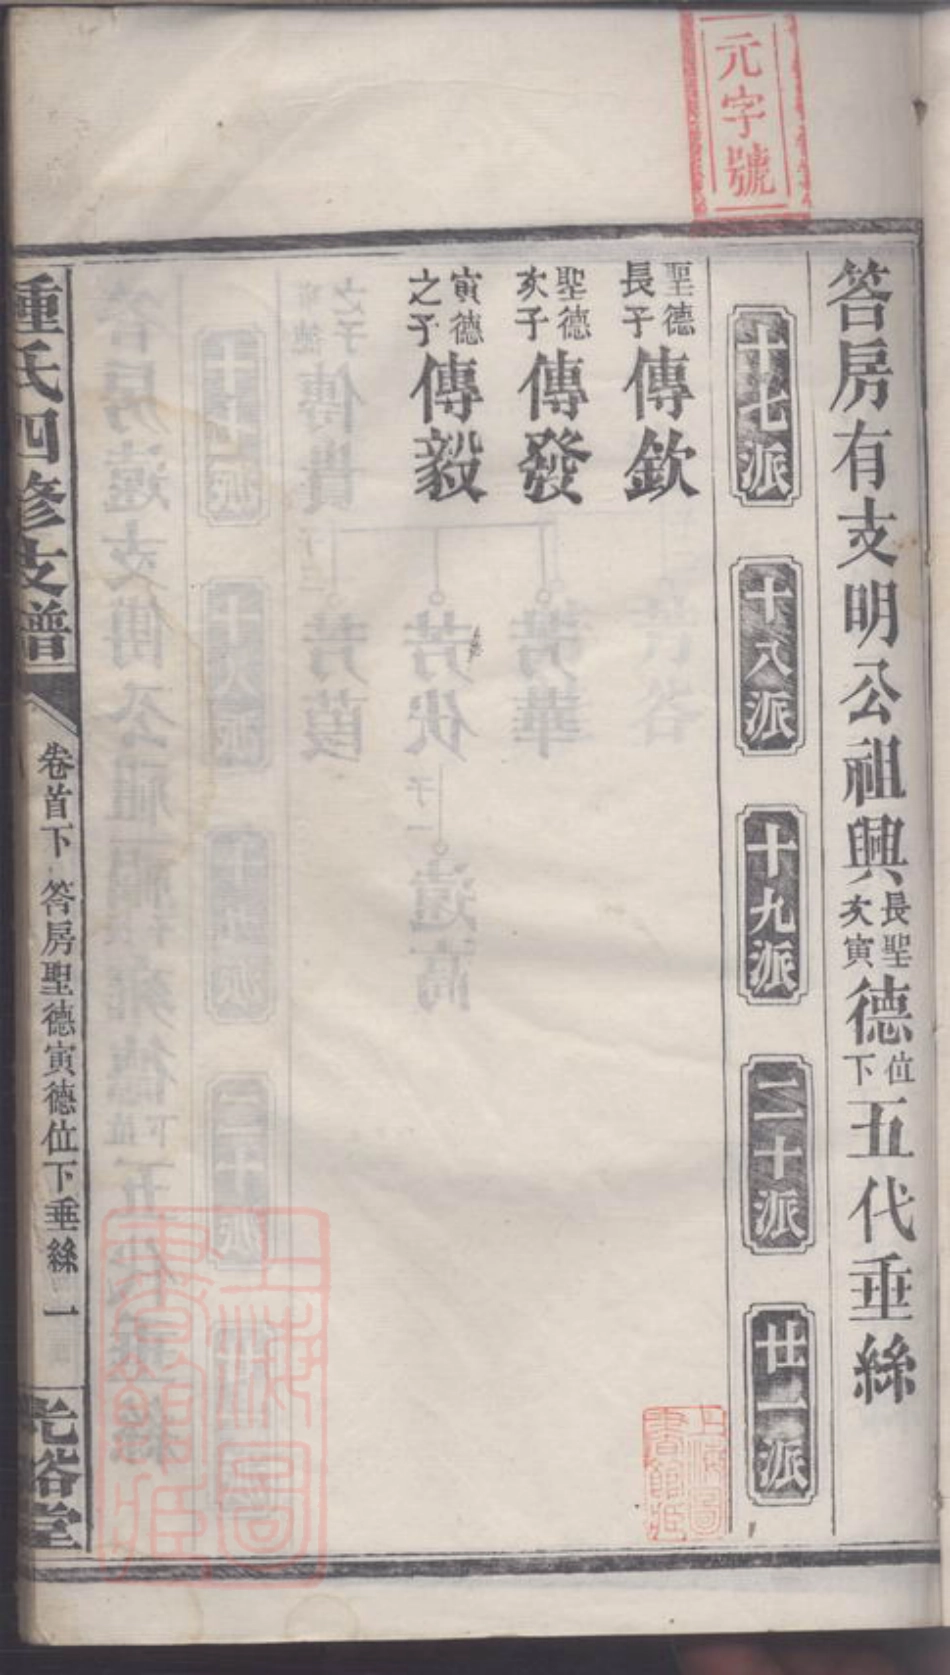 元字號
答房有支明公祖興長聖次寅德位下五代垂絲
十七派
十八派
十九派
二十派
廿一派
聖德長子傳欽
聖德次子傳發
寅德之子傳毅
鍾氏四修支譜
卷首下 答房聖德寅德位下垂絲 一
光裕堂
上海圖書館藏